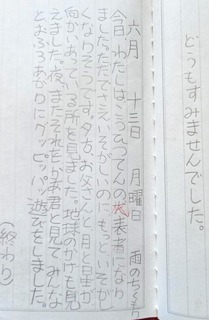 どうもすみませんでした。
六月 十三日 月曜日 雨のちくもり
今日、わたしは、こうひつてんの代表者になり
ました。ただでさえいそがしいのに、もっといそがし
くなりそうです。夕方、お父さんと月と星が
向かいあっている所を見ました。地球のかげも見
えました。夜、またそれをお君と見てみんな
とおふろあがりにグッピッパッ遊びをしました。
(終わり)